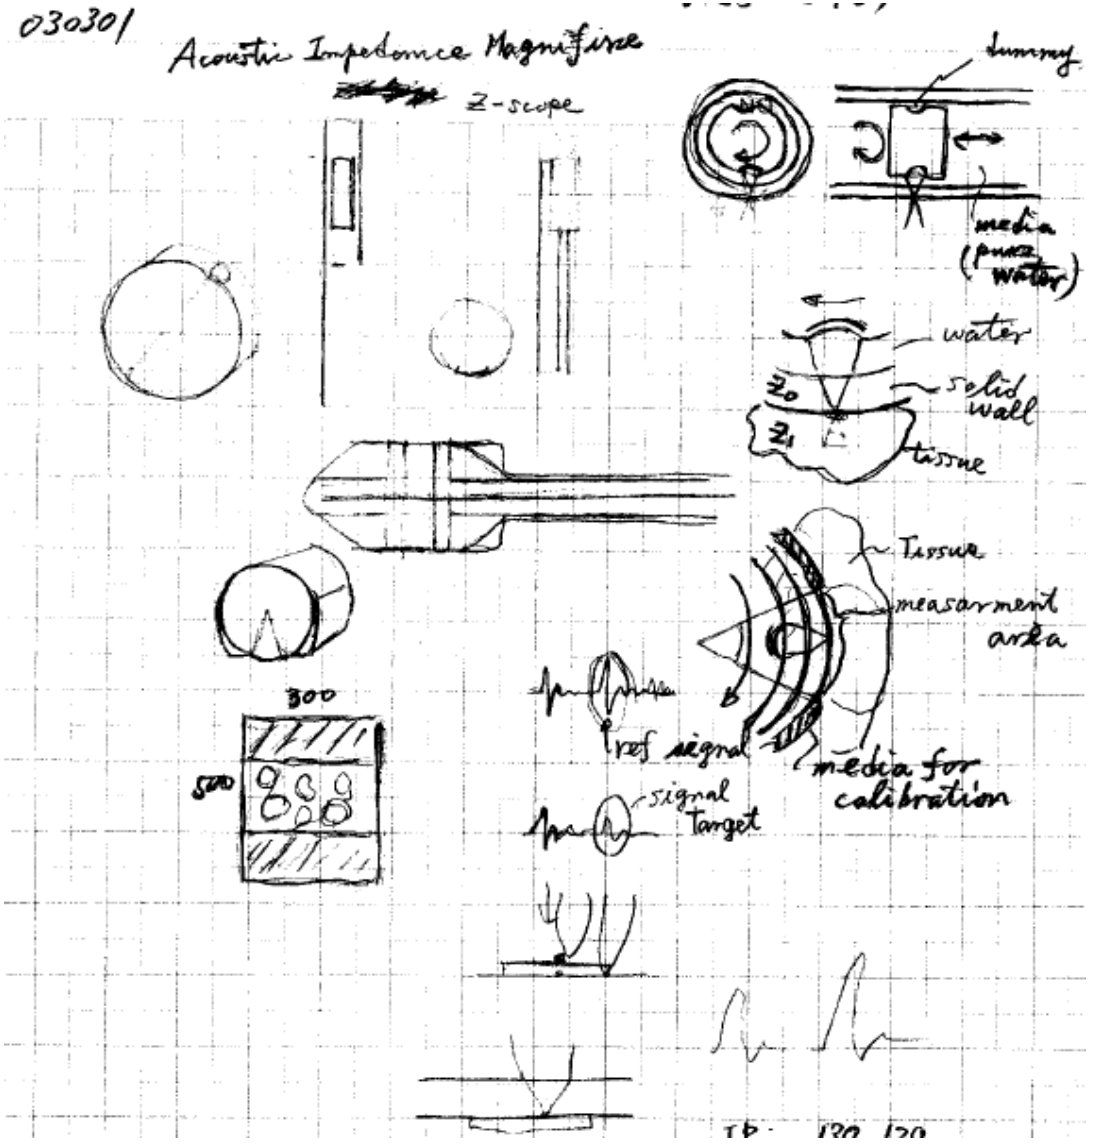 030301
Acoustic Impedance Magnifire
Z-scope
dummy
media
(pure
water)
water
solid
wall
Z0
Z1
tissue
Tissue
measarment
area
300
500
ref signal
media for
calibration
signal
Target
130 120